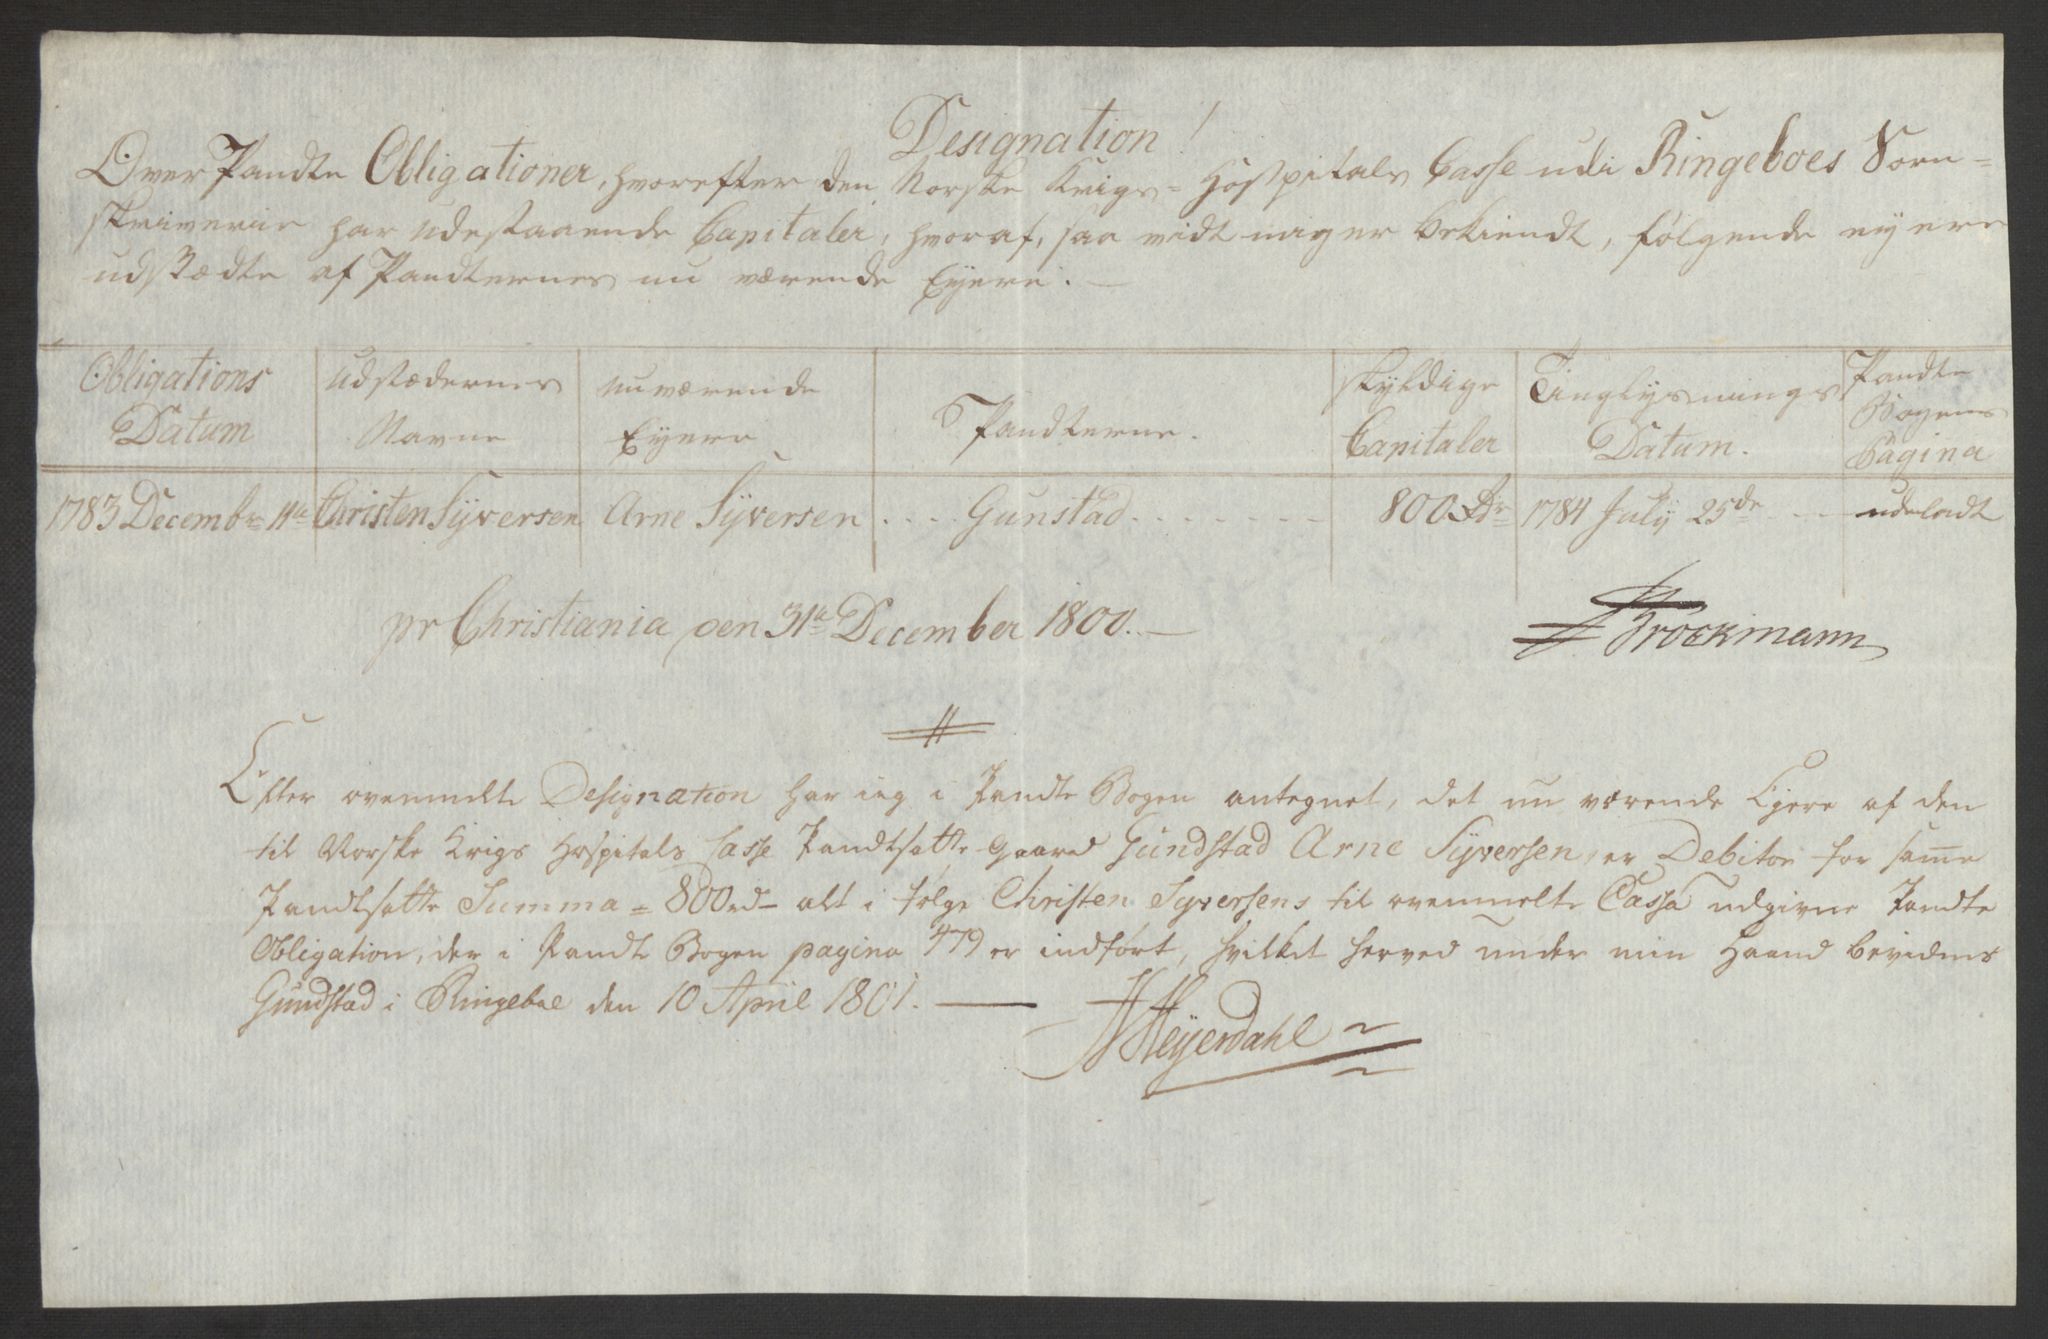 Designation!
Over Pandte Obligationer, hvorefter den Norske Krigs= Hospitals Casse udi Ringeboes Soren=
skriverie har udestaaende Capitaler, hvoraf, saa vidt mig er bekiendt, følgende ey ere
udstædte af Pandternes nu værende Eyere. —
Obligations Datum | Udstædernes Navne | nuværende Eyere | Pandterne. | skyldige Capitaler | Tinglysnings Datum. | Pandte Bogens Pagina
1783 Decembr 11te | Christen Syversen | Arne Syversen | Gunstad | 800 Rdr | 1784 July 25de | udeladt
pr Christiania den 31te December 1800. —
Brockmann
Efter ovenmelte Designation har ieg i Pandte Bogen antegnet, det nu værende Ejere af den
til Norske Krigs Hospitals Casse Pandtsatte Gaard Gundstad Arne Syversen, er Debitor for same
Pandtsatte Summa = 800 rd – alt i følge Christen Syversens til ovenmelte Cassa udgivne Pandte
Obligation, der i Pandte Bogen pagina 479 er indført, hvilket herved under min Haand bevidnes
Gundstad i Ringeboe den 10 April 1801. —
Heyerdahl